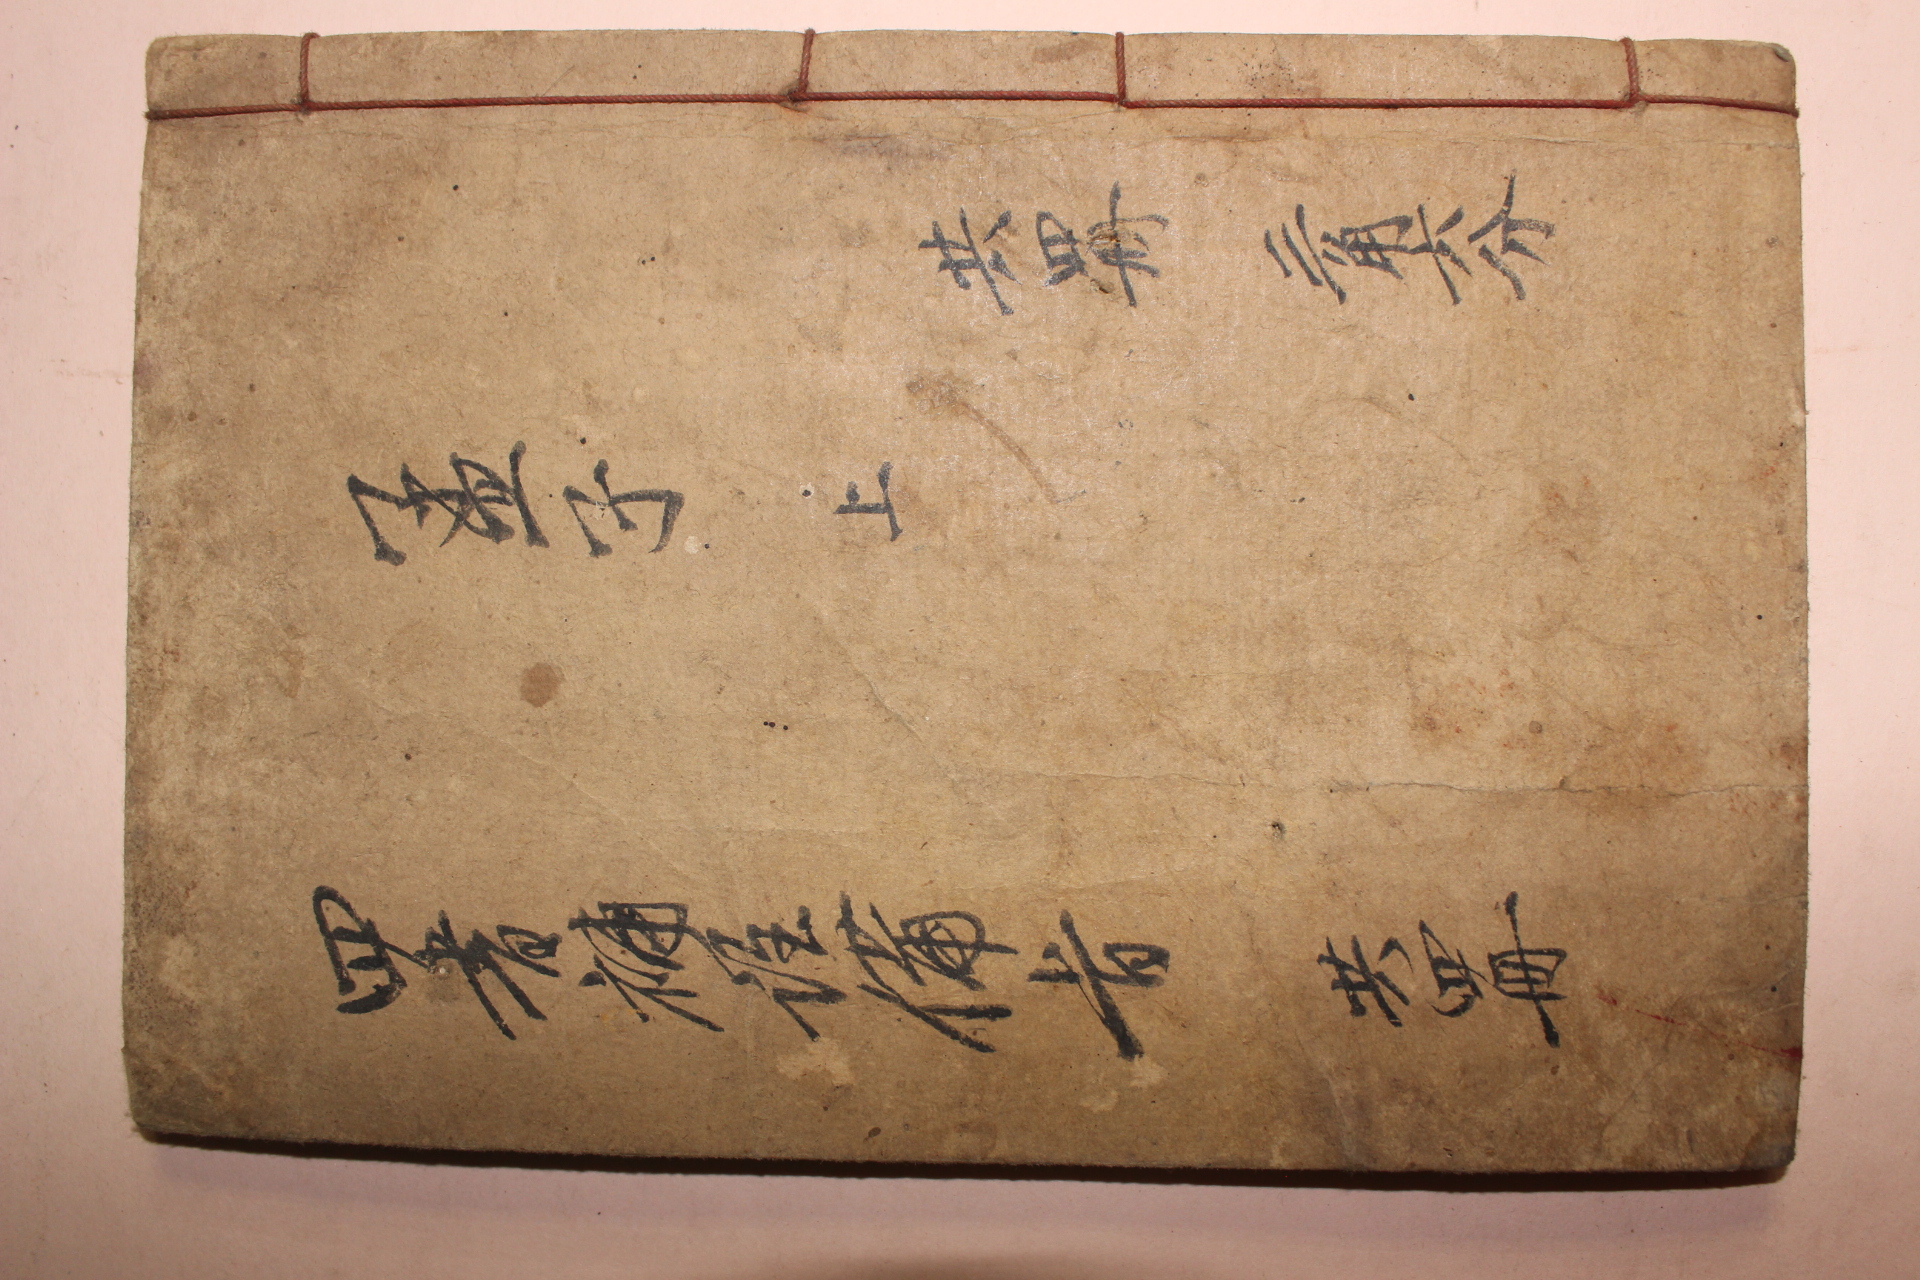 共四冊 三角六分
孟子 上
四書補註備旨 共四冊